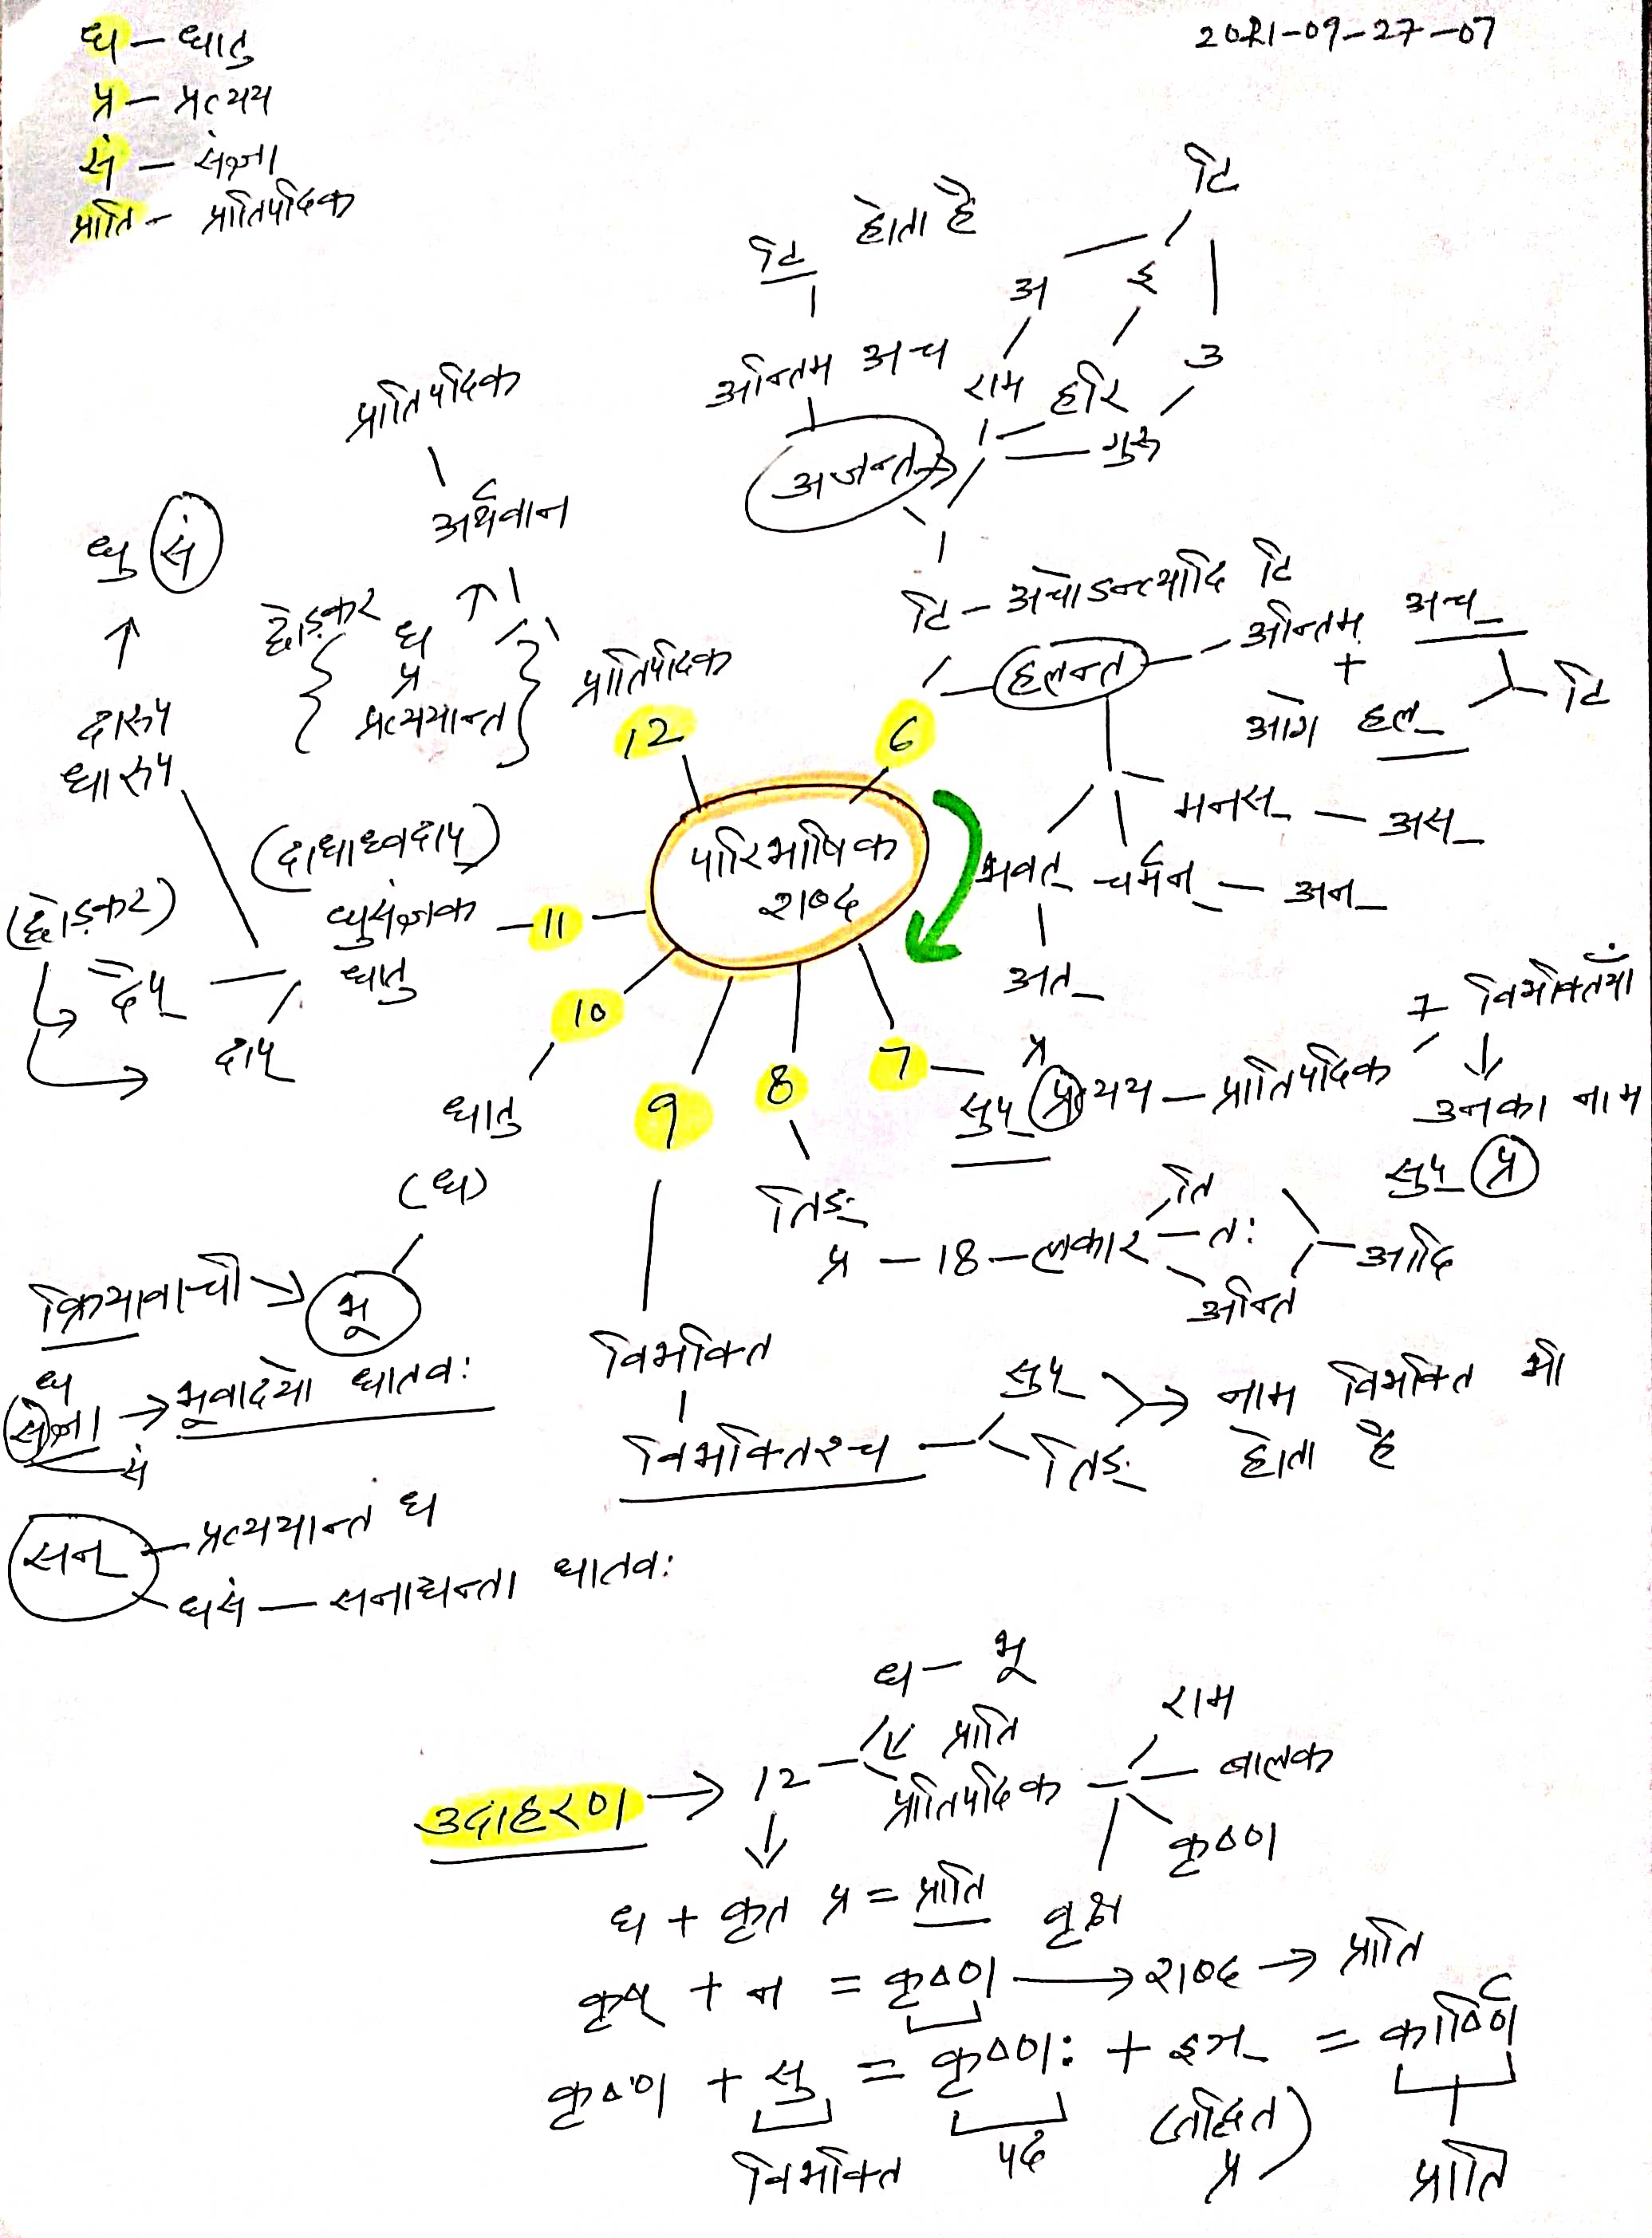 2021-09-27-07
ध - धातु
प्र - प्रत्यय
सं - संज्ञा
प्राति - प्रातिपदिक
टि
टि होता है
अ इ उ
अन्तिम अच
राम हरि गुरु
अजन्त
प्रातिपदिक
अर्थवान
छोड़कर
{ ध
प्र
प्रत्ययान्त }
प्रातिपदिक
12
घु सं
↑
दारूप
धारूप
(दाधाध्वदाप्)
घुसंज्ञक - 11
धातु
(छोड़कर)
दैप्
दाप्
टि - अचोऽन्त्यादि टि
6
हलन्त - अन्तिम अच्
+
आगे हल्
टि
मनस् - अस्
भवत् चर्मन् - अन्
अत्
पारिभाषिक
शब्द
10
धातु
(ध)
क्रियावाची → भू
ध
संज्ञा → भूवादयो धातवः
सं
सन् - प्रत्ययान्त ध
धसं - सनाद्यन्ता धातवः
9
विभक्ति
विभक्तिश्च - सुप् तिङ् → नाम विभक्ति भी
होता है
8
तिङ्
प्र - 18 - लकार - ति तः अन्ति - आदि
7 - सुप् प्रत्यय - प्रातिपदिक
प्र
7 विभक्तियाँ
↓
उनका नाम
सुप् प्र
उदाहरण → 12
ध - भू
प्राति
प्रातिपदिक - राम
बालक
कृष्ण
वृक्ष
ध + कृत प्र = प्राति
कृष् + न = कृष्ण → शब्द → प्राति
कृष्ण + सु = कृष्णः + इञ् = कार्ष्णि
विभक्ति पद (तद्धित प्र) प्राति